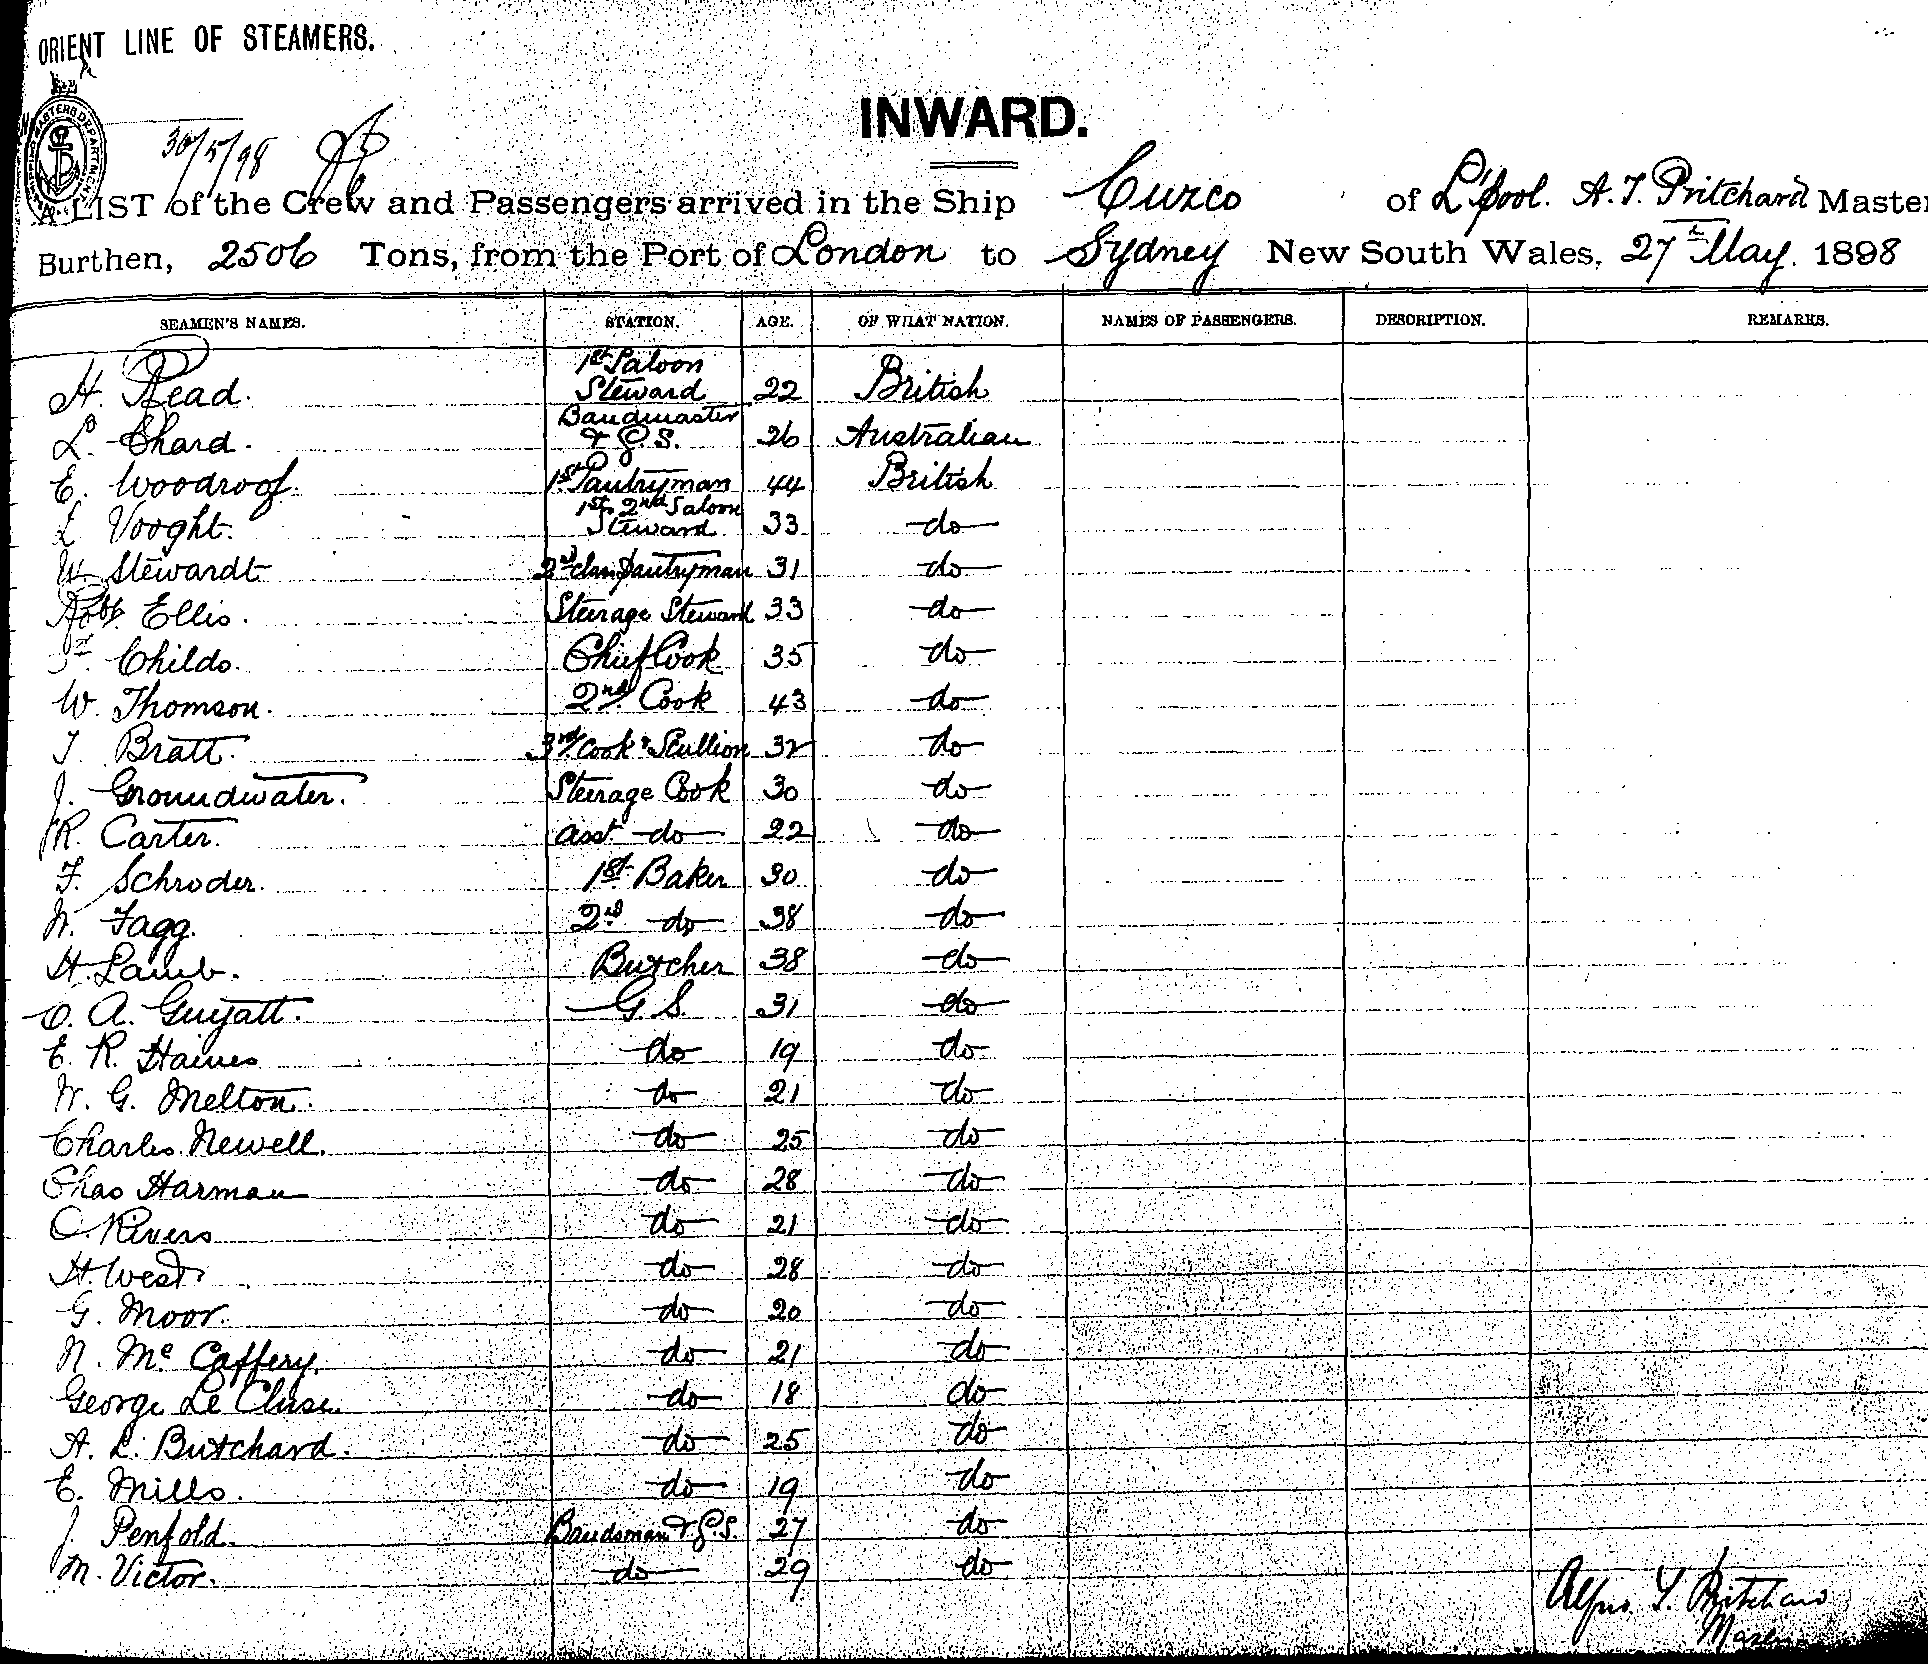 ORIENT LINE OF STEAMERS.
30/5/98
INWARD.
A LIST of the Crew and Passengers arrived in the Ship Cuzco of L'pool. A. J. Pritchard Master
Burthen, 2506 Tons, from the Port of London to Sydney New South Wales, 27th May. 1898
SEAMEN'S NAMES. STATION. AGE. OF WHAT NATION. NAMES OF PASSENGERS. DESCRIPTION. REMARKS.
H. Read. 1st Saloon Steward 22 British
L. Chard. Bandmaster & G.S. 26 Australian
E. Woodroof. 1st Pantryman 44 British
L Vooght. 1st 2nd Saloon Steward 33 do
W. Stewardt 2nd class Pantryman 31 do
Robt. Ellis. Steerage Steward 33 do
F. Childs. Chief Cook 35 do
W. Thomson. 2nd Cook 43 do
T Bratt. 3rd Cook & Scullion 32 do
J. Groundwater. Steerage Cook 30 do
R. Carter. asst do 22 do
F. Schroder. 1st Baker 30 do
W. Fagg. 2nd do 38 do
H. Lamb. Butcher 38 do
O. A. Guyatt. G. S. 31 do
E. R. Haines do 19 do
W. G. Melton. do 21 do
Charles Newell. do 25 do
Chas Harman do 28 do
C. Rivers do 21 do
H. West do 28 do
G. Moor. do 20 do
N. Mc Caffery. do 21 do
George Le Cluse. do 18 do
A. L. Butchard. do 25 do
E. Mills. do 19 do
J. Penfold. Bandsman & G.S. 27 do
M. Victor. do 29 do
Pritchard
Master